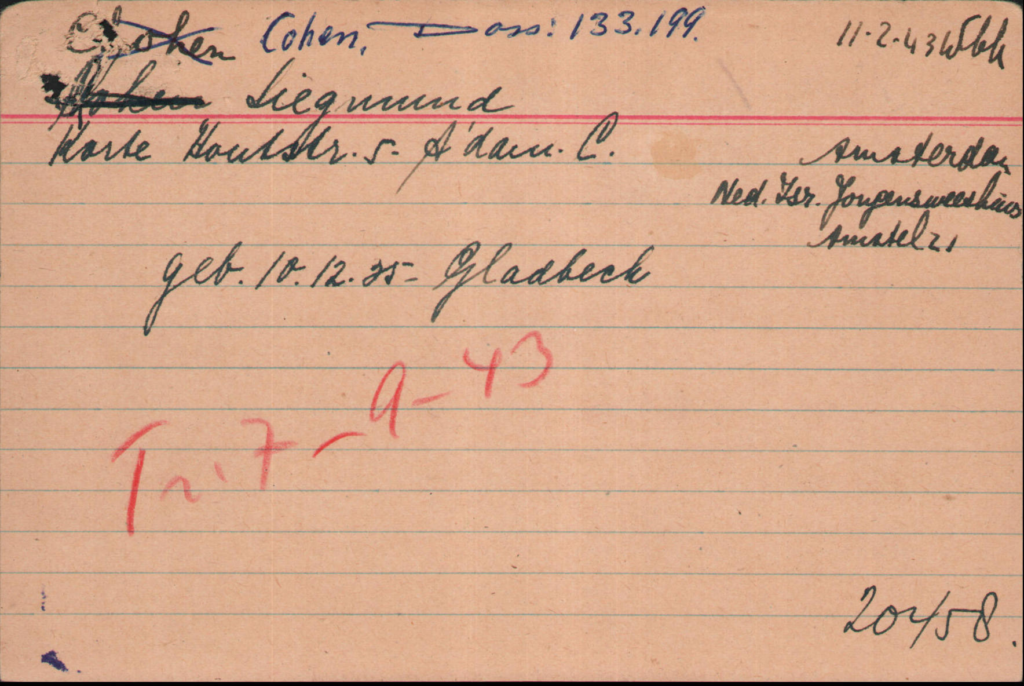 Cohen Cohen, Doss: 133.199. 11-2-43 Wbk
Cohen Siegmund
Korte Houtstr. 5- A'dam. C.
Amsterdam
Ned. Isr. Jongensweeshuis
Amstel 21
geb. 10.12.35- Gladbeck
Tr. 7-9-43
20458.